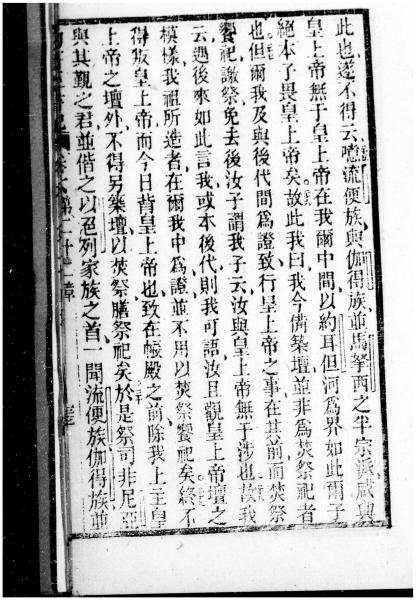 此也遂不得云噫流便族與伽得族並馬拏西之半宗派咸與
皇上帝無于皇上帝在我爾中間以約耳但河為界如此爾子
絕本了畏皇上帝矣故此我曰我今備築壇並非為焚祭祀者
也但爾我及與後代間為證致行皇上帝之事在其前而焚祭
饗祀讌祭免去後汝子謂我子云汝與皇上帝無于涉也故我
云遇後來如此言我或本後代則我可語汝且觀皇上帝壇之
模樣我祖所造者在爾我中為證並不用以焚祭饗祀矣終不
得叛皇上帝而今日背皇上帝也致在帳殿之前除我上主皇
上帝之壇外不得另築壇以焚祭膳祭祀矣於是祭司非尼亞
與其覲之君並偕之以色列家族之首一聞流便族伽得族並